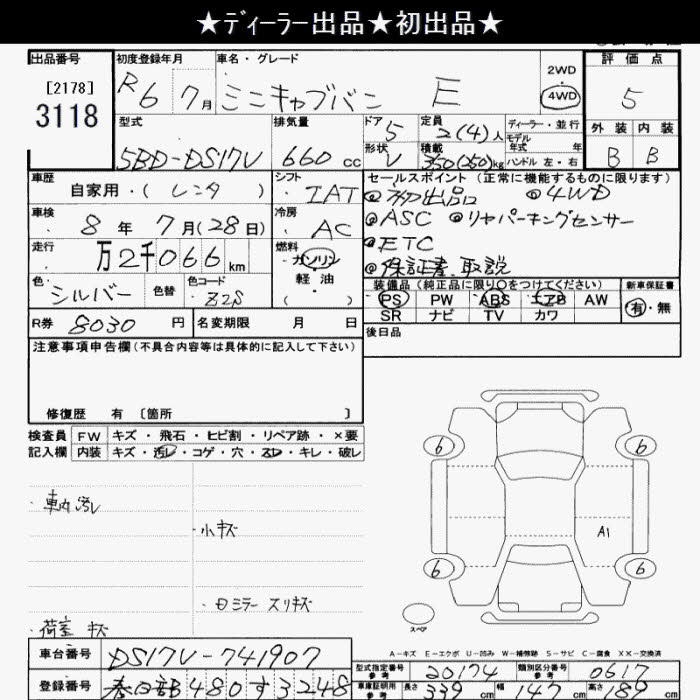 ★ディーラー出品★初出品★
出品番号 初度登録年月 車名・グレード 評価点
[2178]
3118
R6 7月 ミニキャブバン E 2WD 4WD 5
型式 排気量 ドア 5 定員 2(4)人 ディーラー・並行 外装 内装
モデル年式 年
5BD-DS17V 660cc 形状 V 積載 350(250)kg ハンドル 左・右 B B
車歴 自家用・(レンタ) シフト IAT セールスポイント (正常に機能するものに限ります)
◎初出品 ◎4WD
車検 8年 7月(28日) 冷房 AC ◎ASC ◎リヤパーキングセンサー
◎ETC
走行 万2千066km 燃料 ガソリン 軽油 ( )
◎保証書、取説
色 シルバー 色替 色コード Z2S 装備品 (純正品に限り○をつけてください) 新車保証書
PS PW ABS エアB AW 有・無
SR ナビ TV カワ
R券 8030円 名変期限 月 日 後日品
注意事項申告欄 (不具合内容等は具体的に記入して下さい)
修復歴 有 〔箇所 〕
検査員 FW キズ・飛石・ヒビ割・リペア跡・×要
記入欄 内装 キズ・汚レ・コゲ・穴・スレ・キレ・破レ
・車内汚レ
・小キズ
・ロミラースリキズ
・荷室キズ
6 6
A1
6 6
スペア
A-キズ E-エクボ U-凹み W-補修跡 S-サビ C-腐食 XX-交換済
車台番号 DS17V-741907 型式指定番号 参考 20174 類別区分番号 参考 0617
登録番号 春日部480す3248 車庫証明用 参考 長さ 339cm 幅 147cm 高さ 189cm